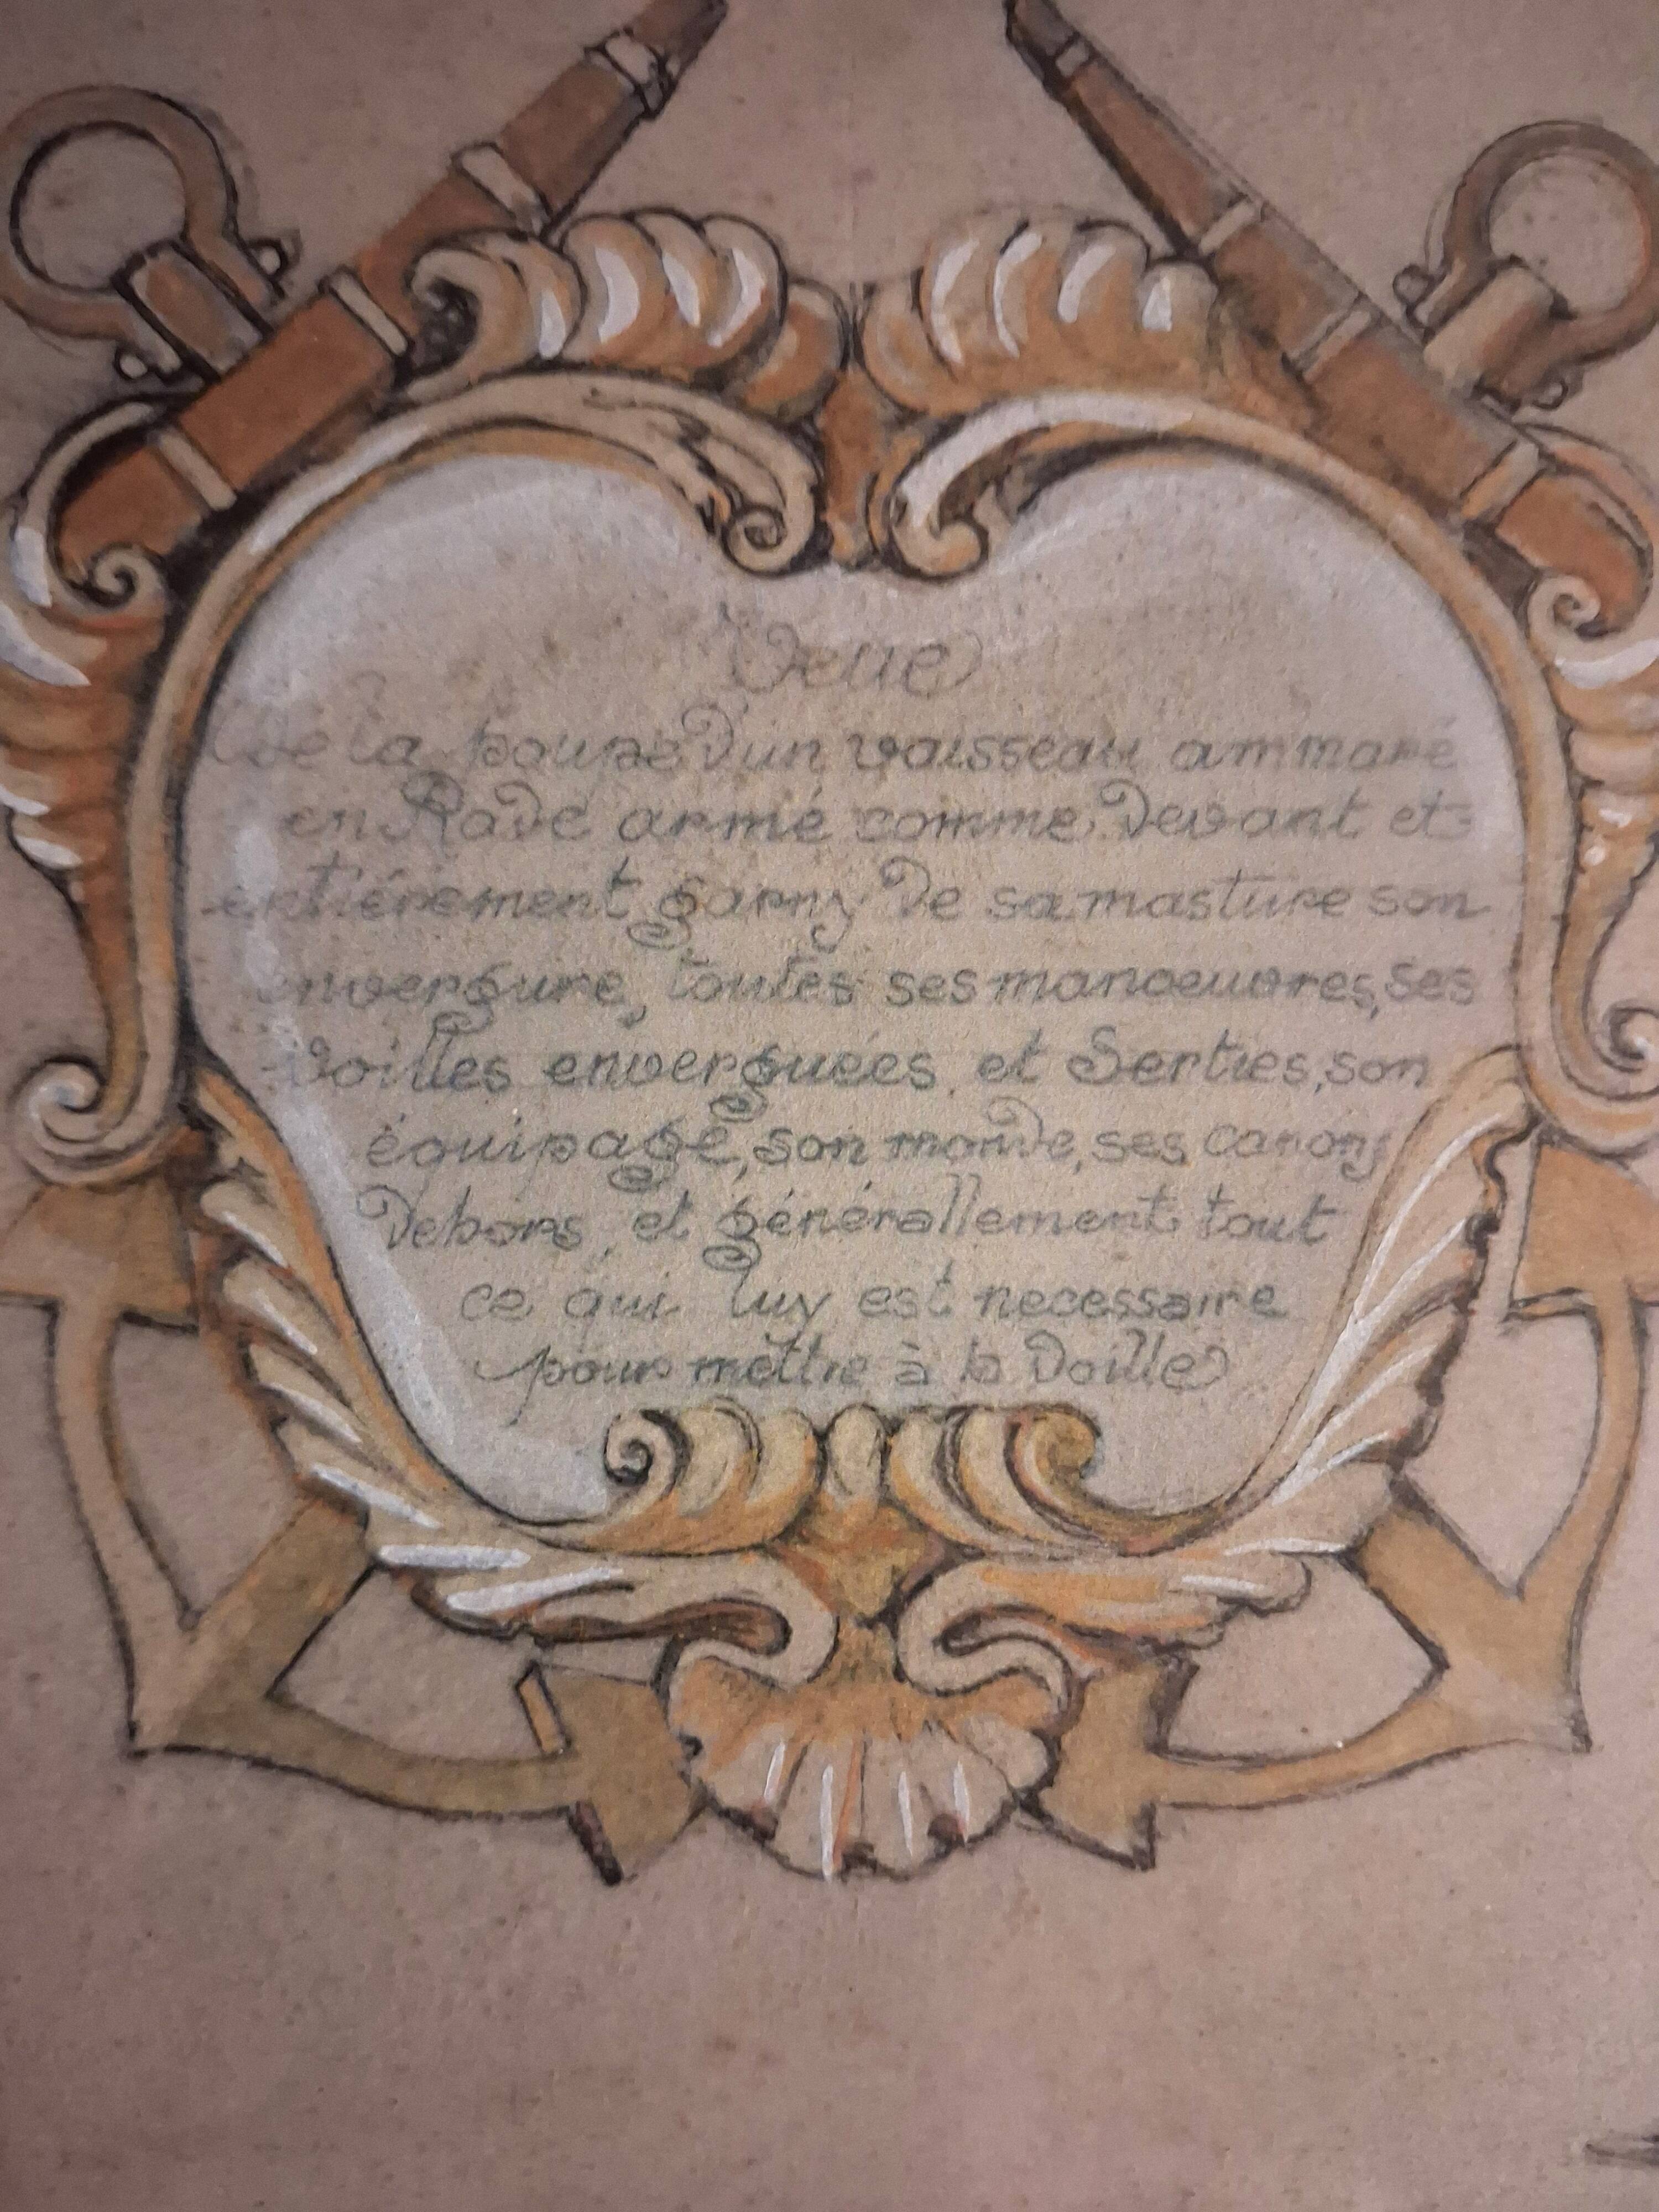 Veue
de la poupe d'un vaisseau ammaré
en Rade armé comme devant et
entiérement garny de sa masture son
envergure, toutes ses manoeuvres, ses
Voilles enverguées et Serties, son
équipage, son monde, ses canons
dehors, et générallement tout
ce qui luy est necessaire
pour mettre à la Voille